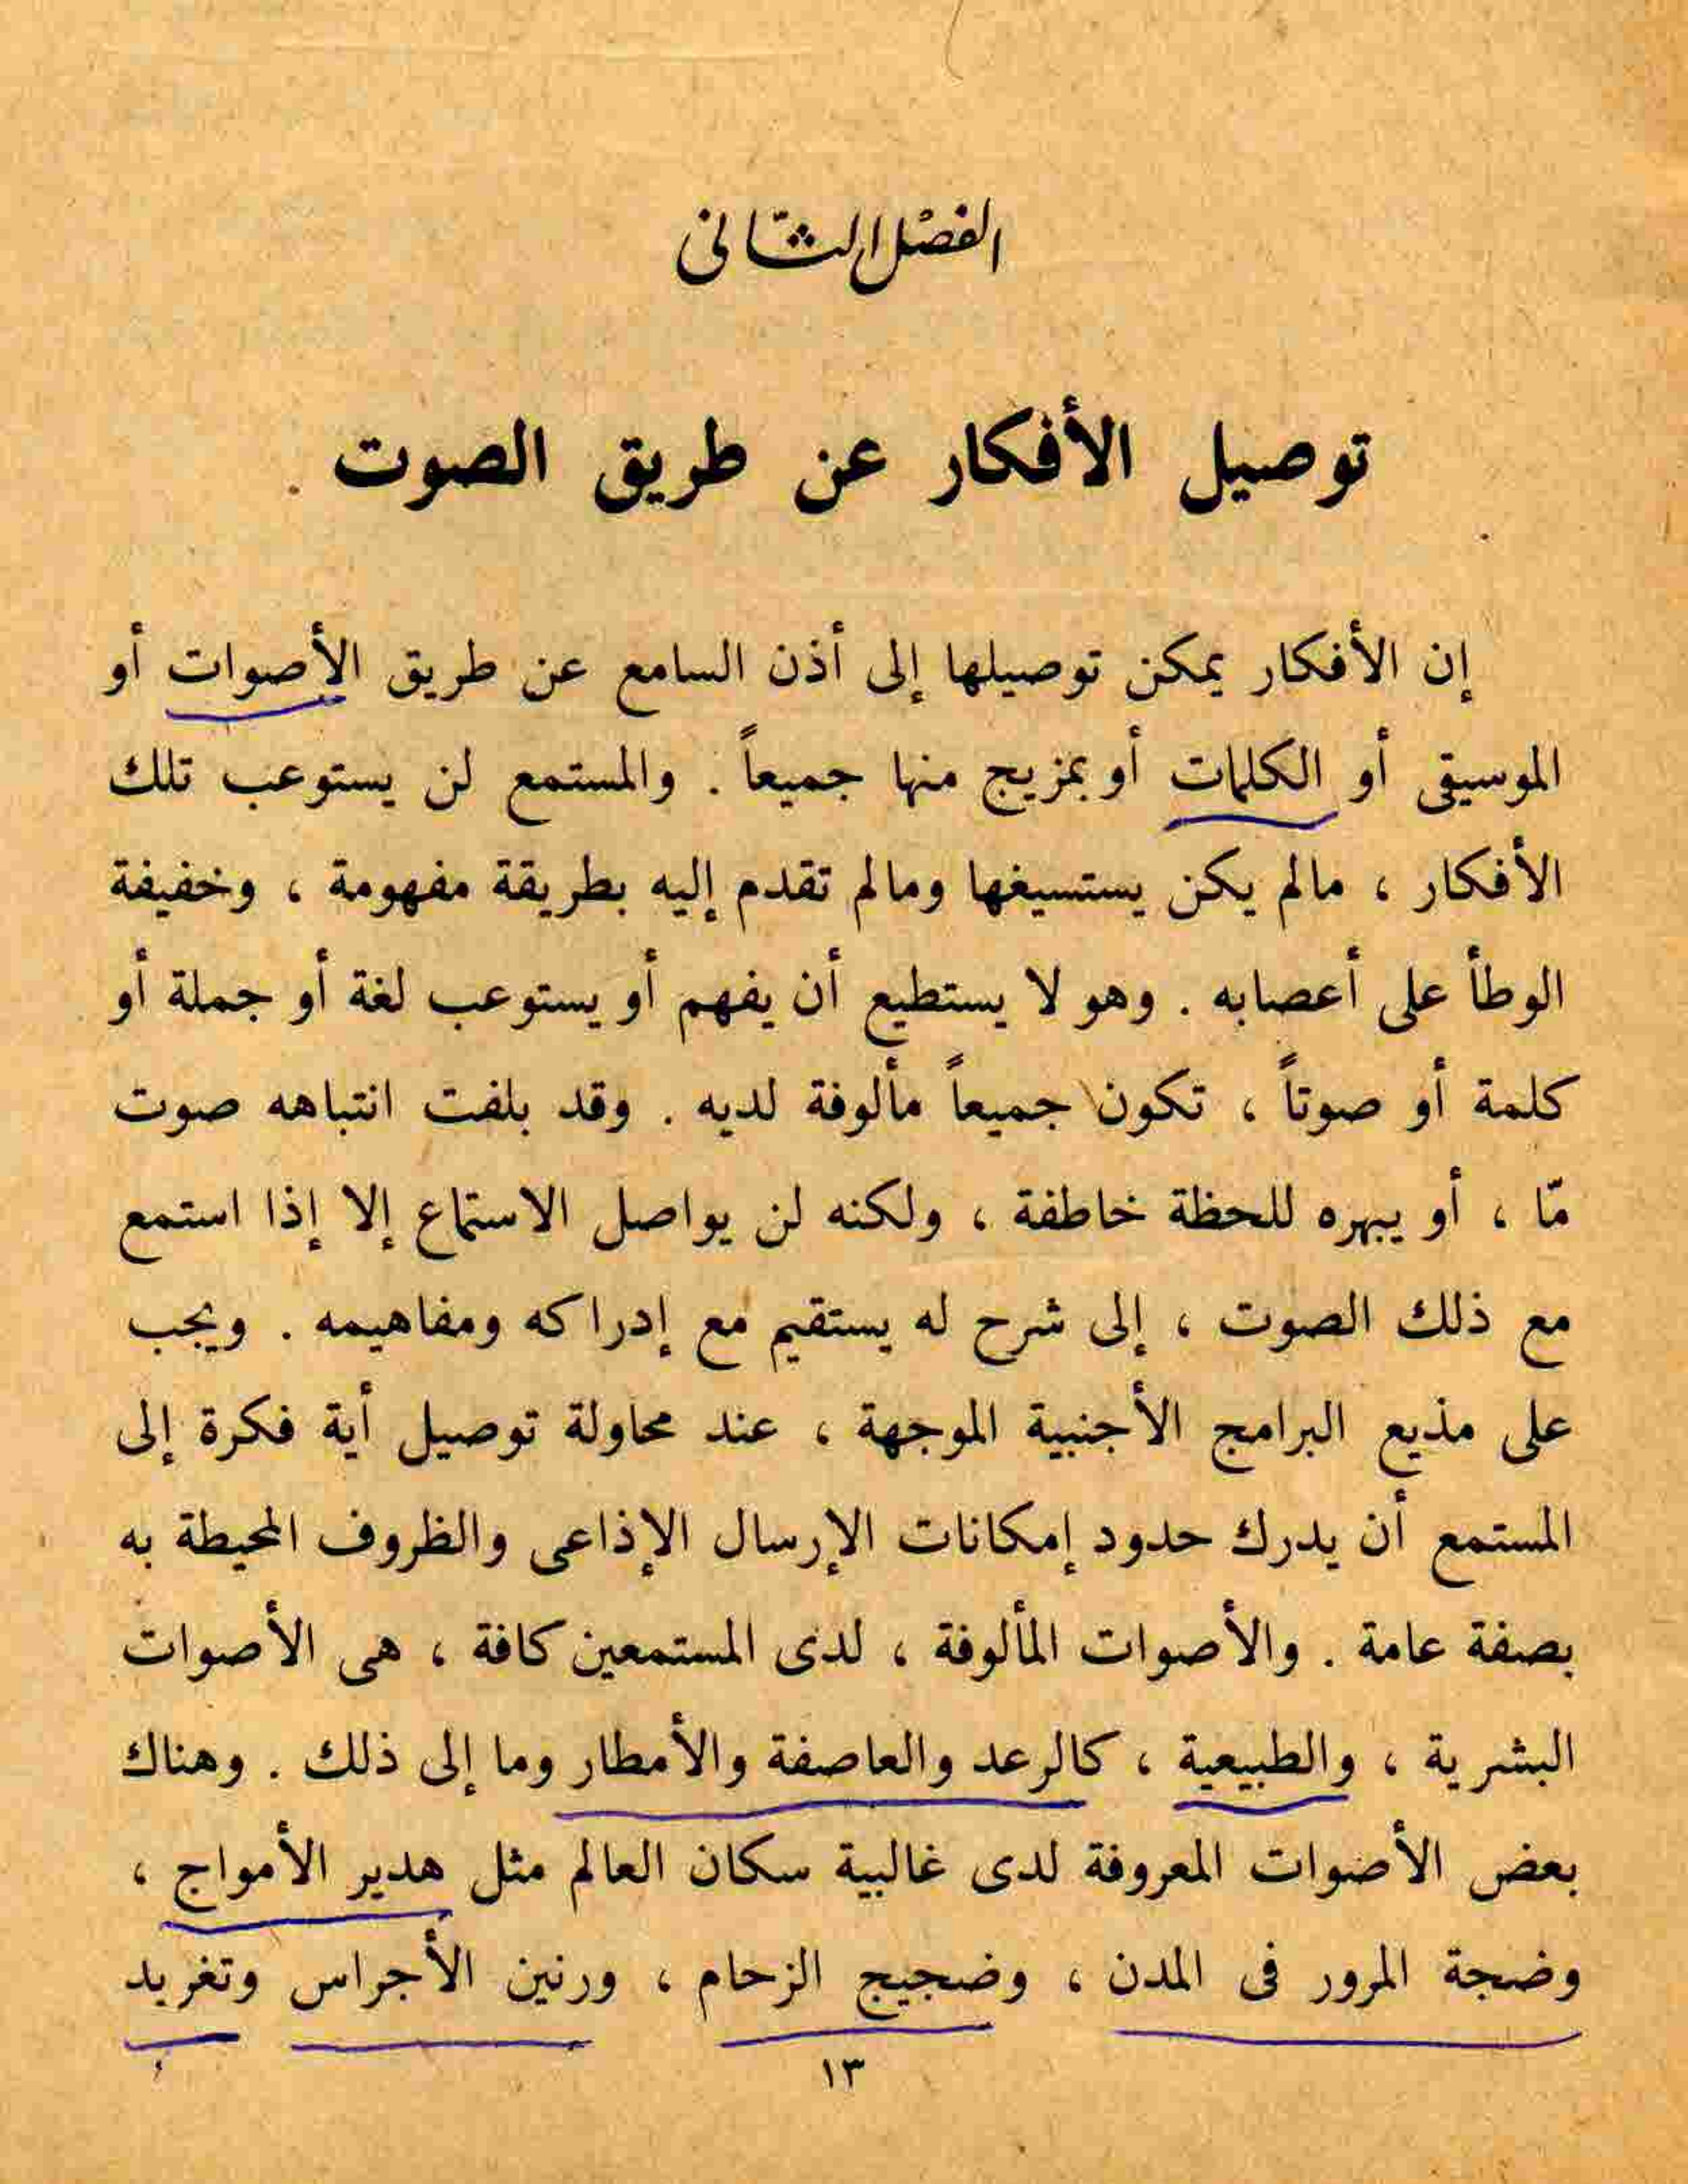 الفصل الثانى
توصيل الأفكار عن طريق الصوت
إن الأفكار يمكن توصيلها إلى أذن السامع عن طريق الأصوات أو
الموسيقى أو الكلمات أو بمزيج منها جميعاً . والمستمع لن يستوعب تلك
الأفكار ، مالم يكن يستسيغها ومالم تقدم إليه بطريقة مفهومة ، وخفيفة
الوطأ على أعصابه . وهو لا يستطيع أن يفهم أو يستوعب لغة أو جملة أو
كلمة أو صوتاً ، تكون جميعاً مألوفة لديه . وقد بلفت انتباهه صوت
مّا ، أو يبهره للحظة خاطفة ، ولكنه لن يواصل الاستماع إلا إذا استمع
مع ذلك الصوت ، إلى شرح له يستقيم مع إدراكه ومفاهيمه . ويجب
على مذيع البرامج الأجنبية الموجهة ، عند محاولة توصيل أية فكرة إلى
المستمع أن يدرك حدود إمكانات الإرسال الإذاعى والظروف المحيطة به
بصفة عامة . والأصوات المألوفة ، لدى المستمعين كافة ، هى الأصوات
البشرية ، والطبيعية ، كالرعد والعاصفة والأمطار وما إلى ذلك . وهناك
بعض الأصوات المعروفة لدى غالبية سكان العالم مثل هدير الأمواج ،
وضجة المرور فى المدن ، وضجيج الزحام ، ورنين الأجراس وتغريد
١٣